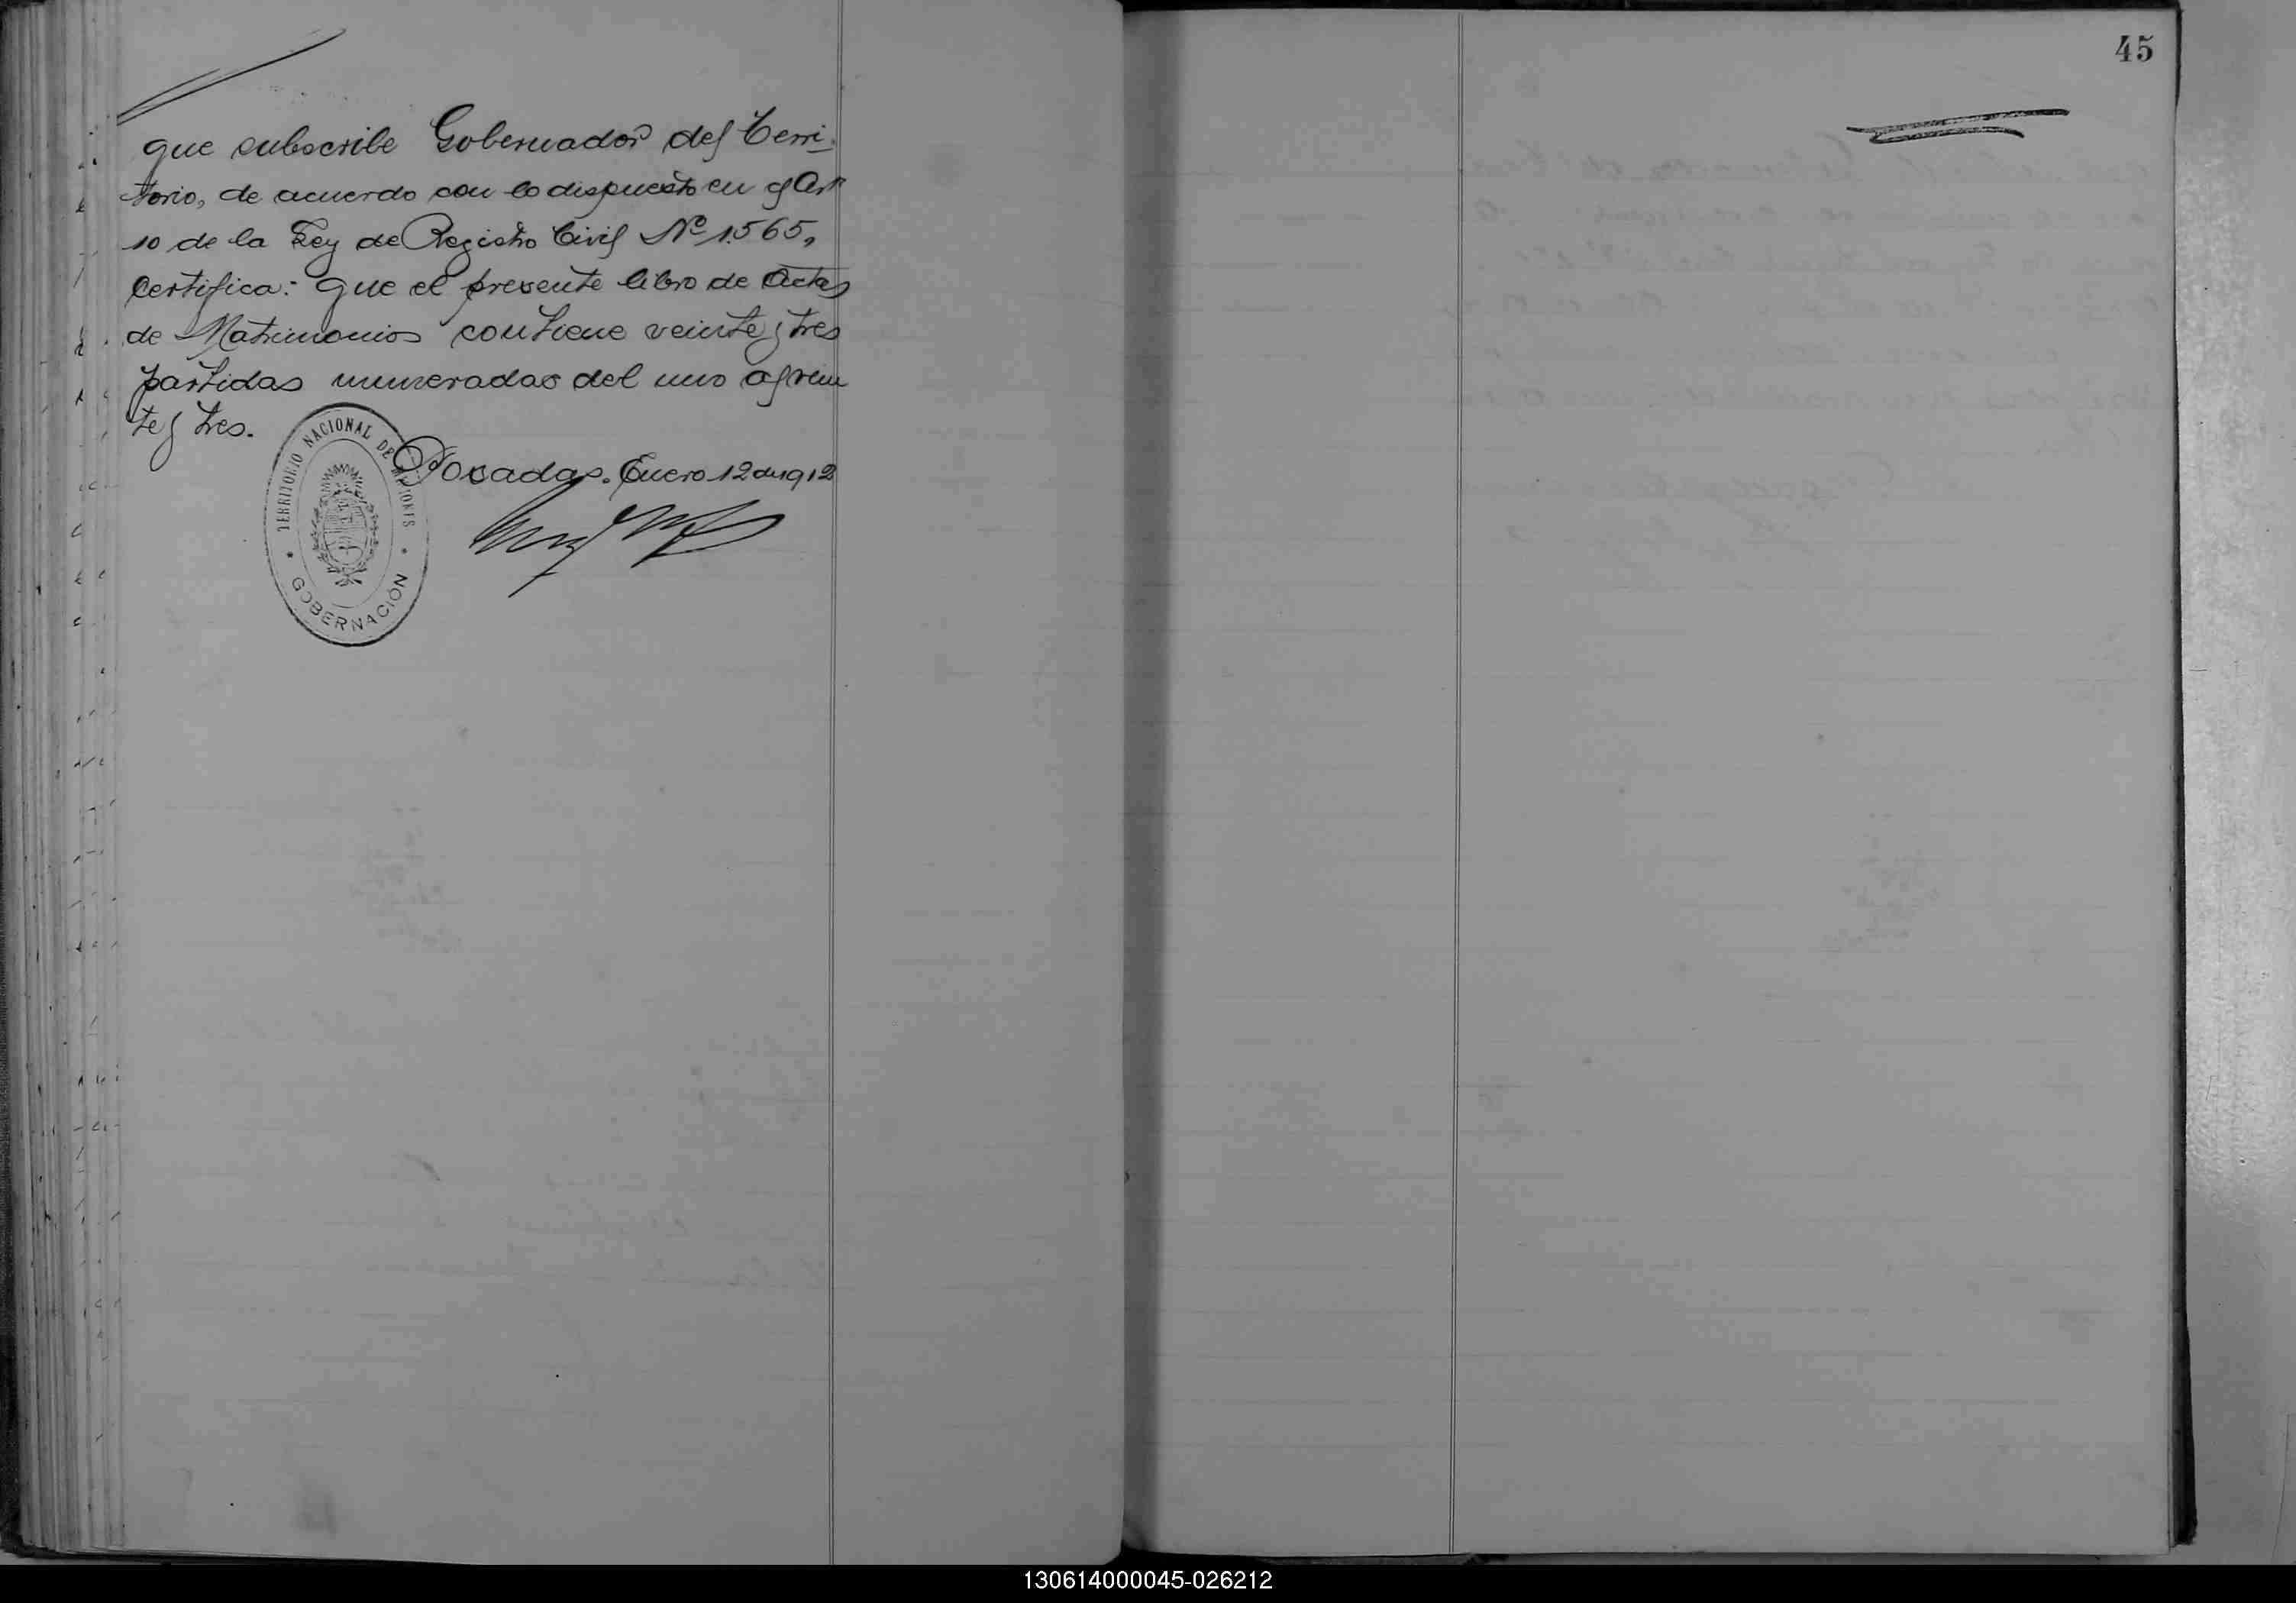 que subscribe Gobernador del Terri-
torio, de acuerdo con lo dispuesto en el Art
10 de la Ley de Registro Civil Nº 1.565,
Certifica: que el presente libro de Actas
de Matrimonios contiene veinte y tres
partidas numeradas del uno al vein
te y tres.
TERRITORIO NACIONAL DE MISIONES
GOBERNACIÓN
Posadas. Enero 12 de 1912
45
130614000045-026212